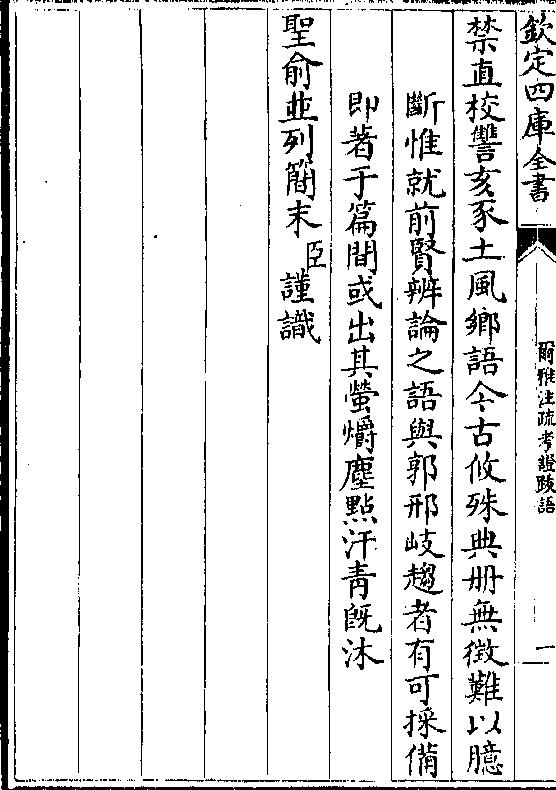 欽定四庫全書
爾雅注疏考證跋語
一
禁直校讐亥豕土風鄉語今古攸殊典册無徴難以臆
斷惟就前賢辨論之語與郭邢岐趨者有可採僃
即著于篇間或出其螢爝塵點汗青既沐
聖俞並列簡末臣謹識